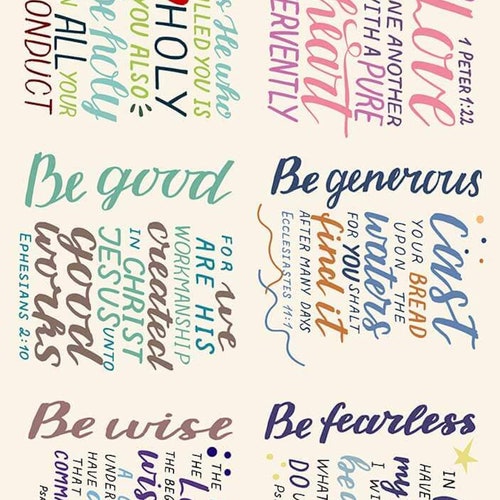 s He who
LLED YOU IS
HOLY
YOU ALSO
be holy
IN ALL YOUR
CONDUCT
1 PETER 1:22
Love
NE ANOTHER
WITH A PURE
heart
ERVENTLY
Be good
FOR we
ARE HIS
WORKMANSHIP
created
IN CHRIST
JESUS UNTO
good
works
EPHESIANS 2:10
Be generous
Cast
YOUR BREAD
UPON THE
waters
FOR YOU SHALT
find it
AFTER MANY DAYS
ECCLESIASTES 11:1
Be wise
THE
THE BE
wis
HAVE
THAT
COMM
Be fearless
IN
my
I W
be
WHAT
DO